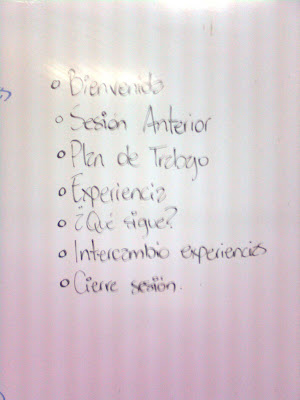 ° Bienvenida
° Sesión Anterior
° Plan de Trabajo
° Experiencia
° ¿Qué sigue?
° Intercambio experiencias
° Cierre sesión.